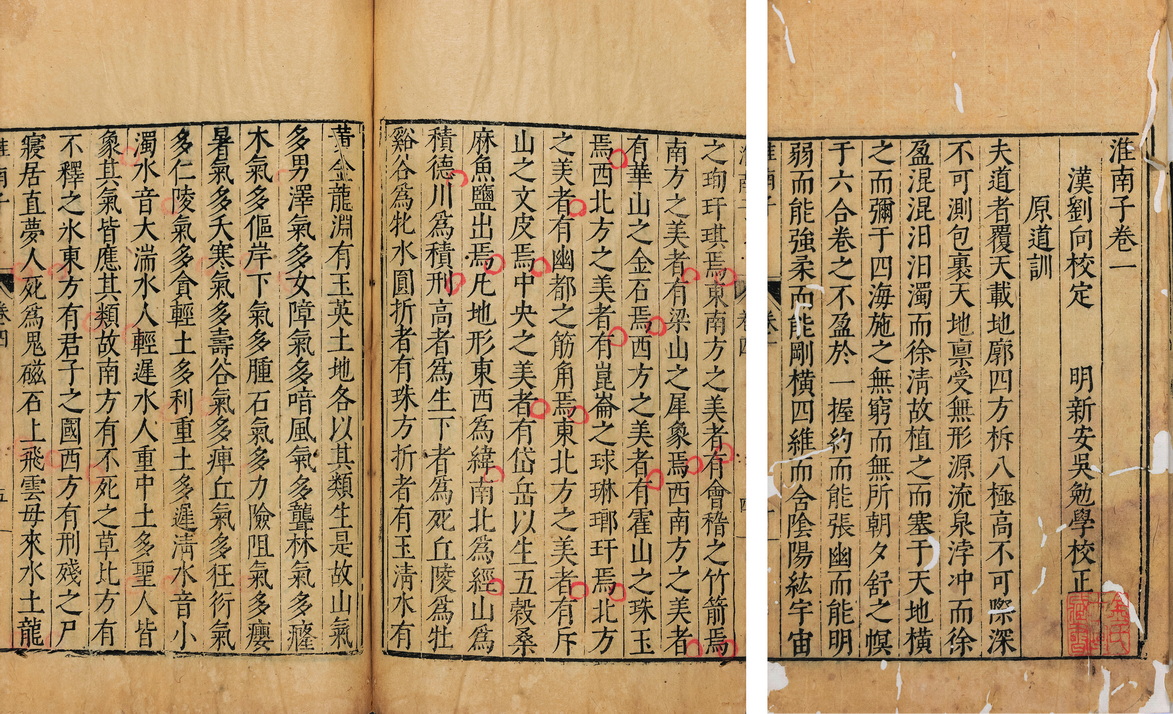 淮南子卷一
漢劉向校定 明新安吳勉學校正
原道訓
夫道者覆天載地廓四方柝八極高不可際深
不可測包裹天地稟受無形源流泉浡冲而徐
盈混混汩汩濁而徐淸故植之而塞于天地橫
之而彌于四海施之無窮而無所朝夕舒之幎
于六合卷之不盈於一握約而能張幽而能明
弱而能強柔而能剛橫四維而含陰陽紘宇宙
之珣玗琪焉東南方之美者有會稽之竹箭焉
南方之美者有梁山之犀象焉西南方之美者
有華山之金石焉西方之美者有霍山之珠玉
焉西北方之美者有崑崙之球琳瑯玕焉北方
之美者有幽都之筋角焉東北方之美者有斥
山之文皮焉中央之美者有岱岳以生五穀桑
麻魚鹽出焉凡地形東西爲緯南北爲經山爲
積德川爲積刑高者爲生下者爲死丘陵爲牡
谿谷爲牝水圓折者有珠方折者有玉淸水有
黃金龍淵有玉英土地各以其類生是故山氣
多男澤氣多女障氣多喑風氣多聾林氣多癃
木氣多傴岸下氣多腫石氣多力險阻氣多癭
暑氣多夭寒氣多壽谷氣多痺丘氣多狂衍氣
多仁陵氣多貪輕土多利重土多遲淸水音小
濁水音大湍水人輕遲水人重中土多聖人皆
象其氣皆應其類故南方有不死之草北方有
不釋之氷東方有君子之國西方有刑殘之尸
寢居直夢人死爲鬼磁石上飛雲母來水土龍